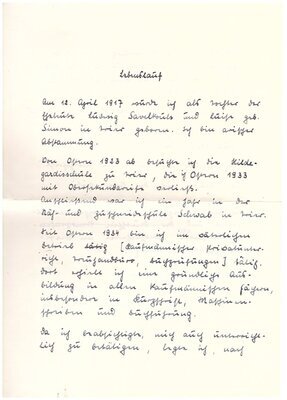 Lebenslauf
Am 12. April 1917 wurde ich als Tochter der
Eheleute Ludwig Savelkouls und Luise geb.
Simon in Trier geboren. Ich bin arischer
Abstammung.
Von Ostern 1923 ab besuchte ich die Hilde-
gardisschule zu Trier, die ich Ostern 1933
mit Obersekundareife verließ.
Anschließend war ich ein Jahr in der
Näh- und Zuschneideschule Schwab in Trier.
Seit Ostern 1934 bin ich im väterlichen
Betrieb [Kaufmännischer Privatunter-
richt, Treuhandbüro, Buchprüfungen] tätig.
Dort erhielt ich eine gründliche Aus-
bildung in allen kaufmännischen Fächern,
insbesondere in Kurzschrift, Maschinen-
schreiben und Buchführung.
Da ich beabsichtige, mich auch unterricht-
lich zu betätigen, legte ich, nach